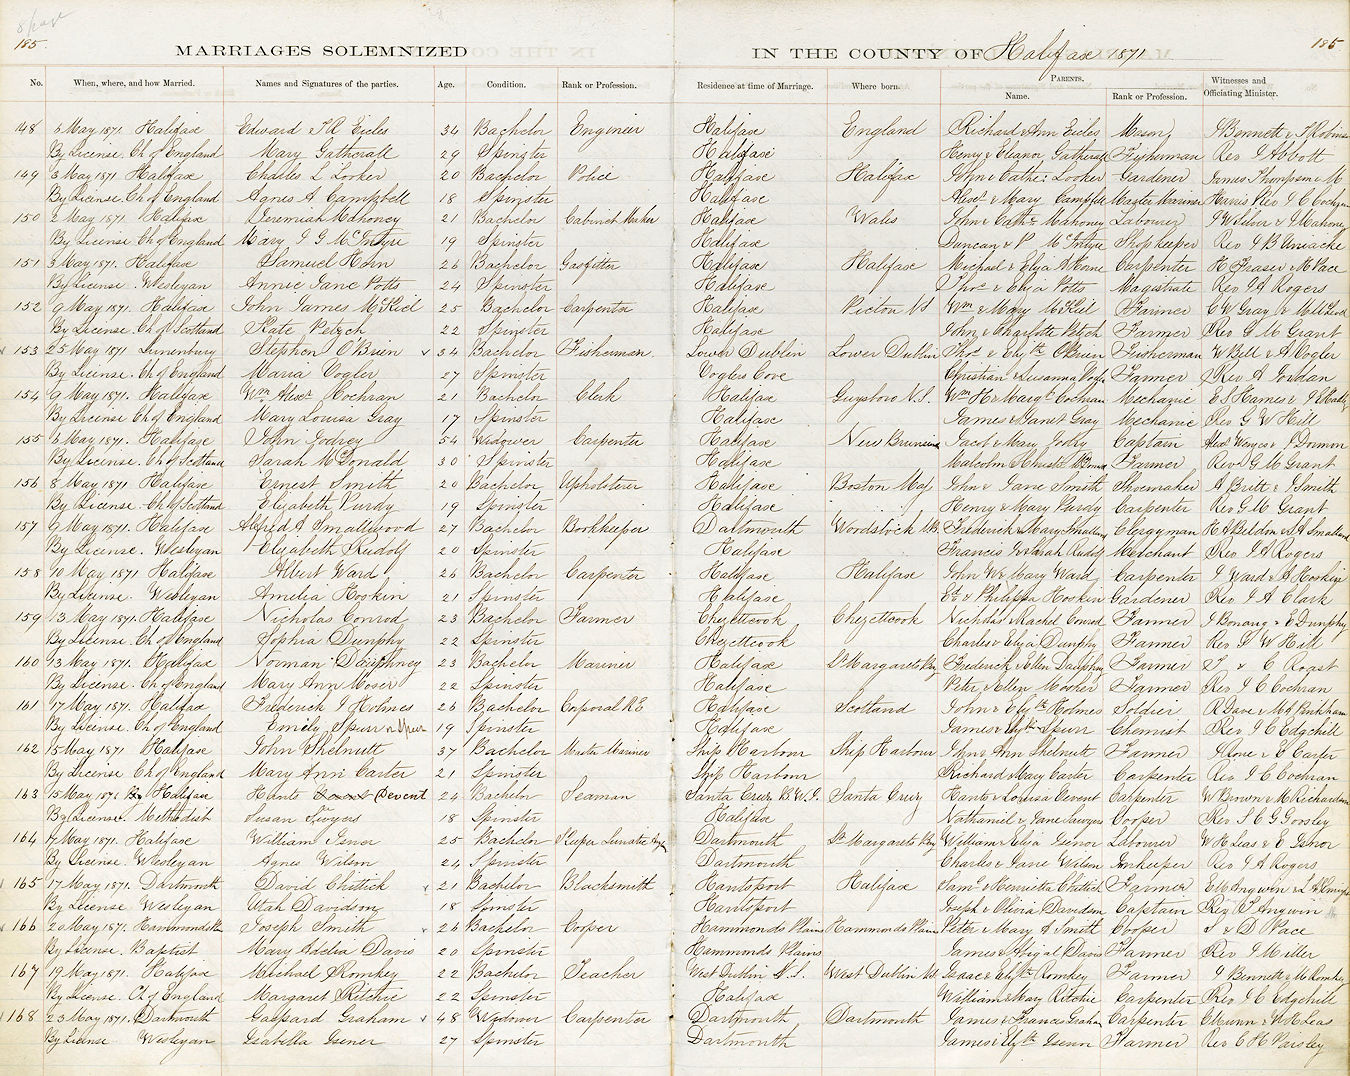 8 page
185 MARRIAGES SOLEMNIZED IN THE COUNTY OF Halifax 1871 185
No. When, where, and how Married. Names and Signatures of the parties. Age. Condition. Rank or Profession. Residence at time of Marriage. Where born. PARENTS. Name. Rank or Profession. Witnesses and Officiating Minister.
148 6 May 1871. Halifax Edward J R Eicles 34 Bachelor Engineer Halifax England Richard & Ann Eicles Mason J Bennett & J Robinson
By License. Ch of England Mary Gatherall 29 Spinster Halifax Henry & Eleanor Gatherall Fisherman Rev J Abbott
149 3 May 1871 Halifax Charles L Looker 20 Bachelor Police Halifax Halifax John & Cathe: Looker Gardener James Thompson & M
By License. Ch of England Agnes A Campbell 18 Spinster Halifax Alexr & Mary Campbell Master Mariner Harris Rev J C Cochran
150 2 May 1871. Halifax Jeremiah Mahoney 21 Bachelor Cabinet Maker Halifax Wales John & Cathe Mahoney Labourer J Wilson & J Mahoney
By License Ch of England Mary J G McIntyre 19 Spinster Halifax Duncan & P McIntyre Shopkeeper Rev J B Uniacke
151 3 May 1871. Halifax Samuel Horn 26 Bachelor Gasfitter Halifax Halifax Michael & Eliza A Horne Carpenter H Fraser & M Pace
By License. Wesleyan Annie Jane Potts 24 Spinster Halifax Thos & Eliza Potts Magistrate Rev J A Rogers
152 9 May 1871. Halifax John James McKiel 25 Bachelor Carpenter Halifax Pictou NS Wm & Mary McKiel Farmer G W Gray & M McLeod
By License. Ch of Scotland Kate Petsch 22 Spinster Halifax John & Charlotte Petch Farmer Rev G M Grant
153 25 May 1871 Lunenburg Stephen O'Brien 34 Bachelor Fisherman Lower Dublin Lower Dublin Thos & Elizth O'Brien Fisherman W Bell & A Vogler
By License. Ch of England Maria Vogler 27 Spinster Voglers Cove Christian & Susanna Vogler Farmer Rev A Jordan
154 9 May 1871. Halifax Wm Alexr Cochran 21 Bachelor Clerk Halifax Guysboro N.S. Wm H & Margt Cochran Mechanic E S Hames &
By License Ch of England Mary Louisa Gray 17 Spinster Halifax James & Janet Gray Mechanic Rev G W Hill
155 5 May 1871. Halifax John Godrey 54 Widower Carpenter Halifax New Brunswick Jacob & Mary Godry Captain Alexr Wenyce & J Dorman
By License. Ch of Scotland Sarah McDonald 30 Spinster Halifax Malcolm & Christa McDonald Farmer Rev G M Grant
156 8 May 1871 Halifax Ernest Smith 20 Bachelor Upholsterer Halifax Boston Mas John & Jane Smith Shoemaker A Britt & J Smith
By License. Ch of Scotland Elizabeth Purdy 19 Spinster Halifax Henry & Mary Purdy Carpenter Rev G M Grant
157 9 May 1871. Halifax Alfred A Smallwood 27 Bachelor Bookkeeper Dartmouth Woodstock NB. Frederick & Mary Smallwood Clergyman H A Beldon & A Smallwood
By License. Wesleyan Elizabeth Rudolf 20 Spinster Halifax Francis J & Sarah Rudolf Merchant Rev J A Rogers
158 10 May 1871 Halifax Albert Ward 26 Bachelor Carpenter Halifax Halifax John W & Mary Ward Carpenter J Ward & A Hoskin
By License. Wesleyan Amelia Hoskin 21 Spinster Halifax & Philippa Hoskin Gardener Rev J A Clark
159 13 May 1871. Halifax Nicholas Conrod 23 Bachelor Farmer Chezettcook Chezettcook Nicholas Rachel Conrod Farmer J Bonang & E Dunphy
By License. Ch of England Sophia Dunphy 22 Spinster Chezettcook Charles & Eliza Dunphy Farmer Rev G W Hill
160 13 May 1871. Halifax Norman Dauphney 23 Bachelor Mariner Halifax St Margarets Bay Frederick & Ellen Dauphney Farmer & C Roast
By License. Ch of England Mary Ann Moser 22 Spinster Halifax Peter & Ellen Mosher Farmer Rev J C Cochran
161 17 May 1871. Halifax Frederick J Holmes 26 Bachelor Corporal R.E. Halifax Scotland John & Elizth Holmes Soldier R Dave & M J Pinkham
By License. Ch of England Emily Spurr or Spier 19 Spinster Halifax James & Elizth Spurr Chemist Rev J C Edgehill
162 15 May 1871 Halifax John Shelnutt 37 Bachelor Master Mariner Ship Harbour Ship Harbour John & Ann Shelnutt Farmer J Cone & E Carter
By License Ch of England Mary Ann Carter 21 Spinster Ship Harbour Richard & Mary Carter Carpenter Rev J C Cochran
163 15 May 1871 Halifax Hants Devent 24 Bachelor Seaman Santa Cruz B.W.I. Santa Cruz Hants & Louisa Devent Carpenter W Brown & M Richardson
By License. Methodist Susan Sawyers 18 Spinster Halifax Nathaniel & Jane Sawyers Cooper Rev J C G Goosley
164 17 May 1871. Halifax William Isnor 25 Bachelor Keeper Lunatic Asylum Dartmouth St Margarets Bay William & Eliza Isenor Labourer W H Leas & E Isnor
By License. Wesleyan Agnes Wilson 24 Spinster Dartmouth Charles & Jane Wilson Innkeeper Rev J A Rogers
165 17 May 1871. Dartmouth David Chittick 21 Bachelor Blacksmith Hantsport Halifax Saml & Henrietta Chittick Farmer E M Angwin & L
By License Wesleyan Utah Davidson 18 Spinster Hantsport Joseph & Olivia Davidson Captain Rev T Angwin
166 20 May 1871. Hammonds Pln Joseph Smith 26 Bachelor Cooper Hammonds Plains Hammonds Plains Peter & Mary A Smith Cooper S & D Pace
By License. Baptist Mary Adelia Davis 20 Spinster Hammonds Plains James & Abigal Davis Farmer Rev J Miller
167 19 May 1871. Halifax Michael Romkey 22 Bachelor Teacher West Dublin N.S. West Dublin NS Isaac & Elizth Romkey Farmer J Bennett & M Romkey
By License. Ch of England Margaret Ritchie 22 Spinster Halifax William & Mary Ritchie Carpenter Rev J C Edgehill
168 23 May 1871. Dartmouth Gaspard Graham 48 Widower Carpenter Dartmouth Dartmouth James & Frances Graham Carpenter C Munn & W H Leas
By License Wesleyan Isabella Isener 27 Spinster Dartmouth James & Elizth Isenor Farmer Rev C H Paisley